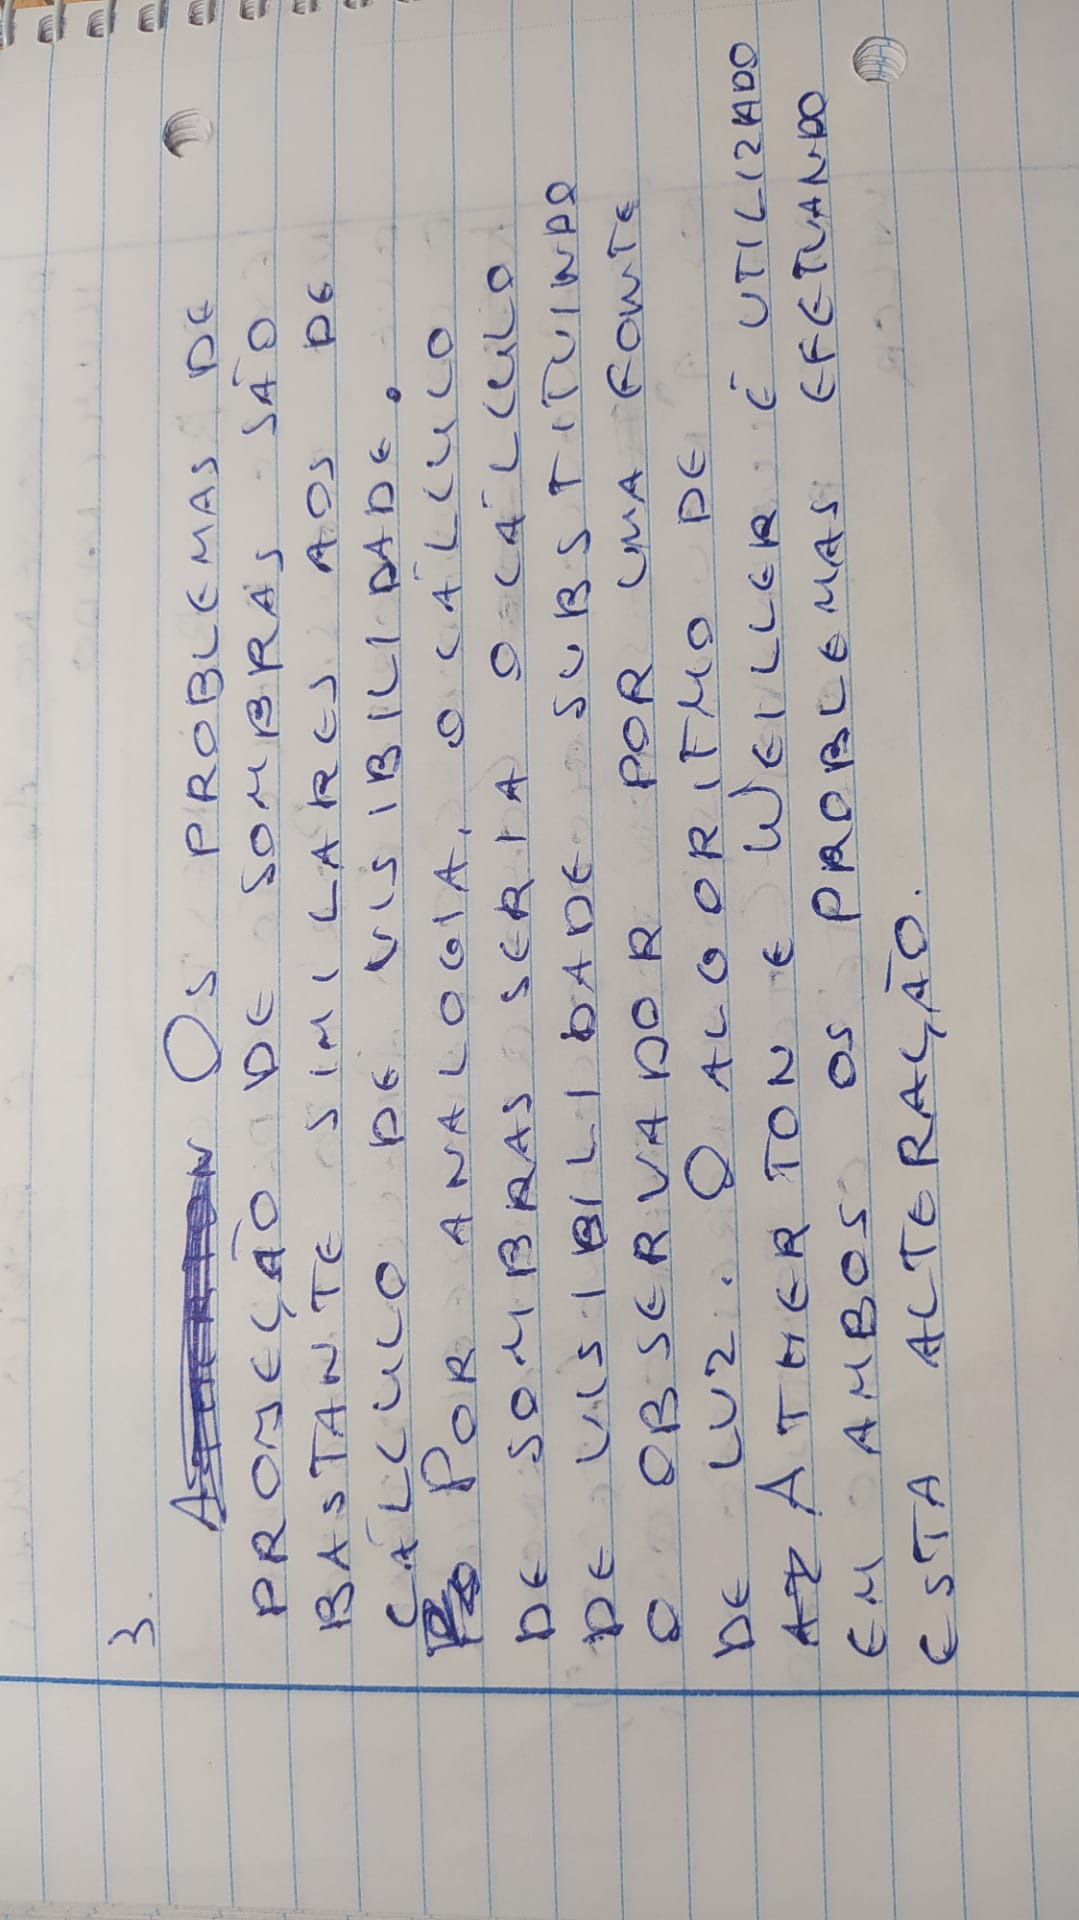 3.
Os PROBLEMAS DE
PROJEÇÃO DE SOMBRAS SÃO
BASTANTE SIMILARES AOS DE
CÁLCULO DE VISIBILIDADE.
POR ANALOGIA, O CÁLCULO
DE SOMBRAS SERIA O CÁLCULO
DE VISIBILIDADE SUBSTITUINDO
O OBSERVADOR POR UMA FONTE
DE LUZ. O ALGORITMO DE
ATHERTON E WEILLER É UTILIZADO
EM AMBOS OS PROBLEMAS EFETUANDO
ESTA ALTERAÇÃO.